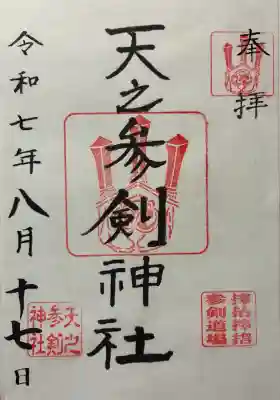 奉拝
天之参剣神社
令和七年八月十七日
天之参剣神社
参剣道場